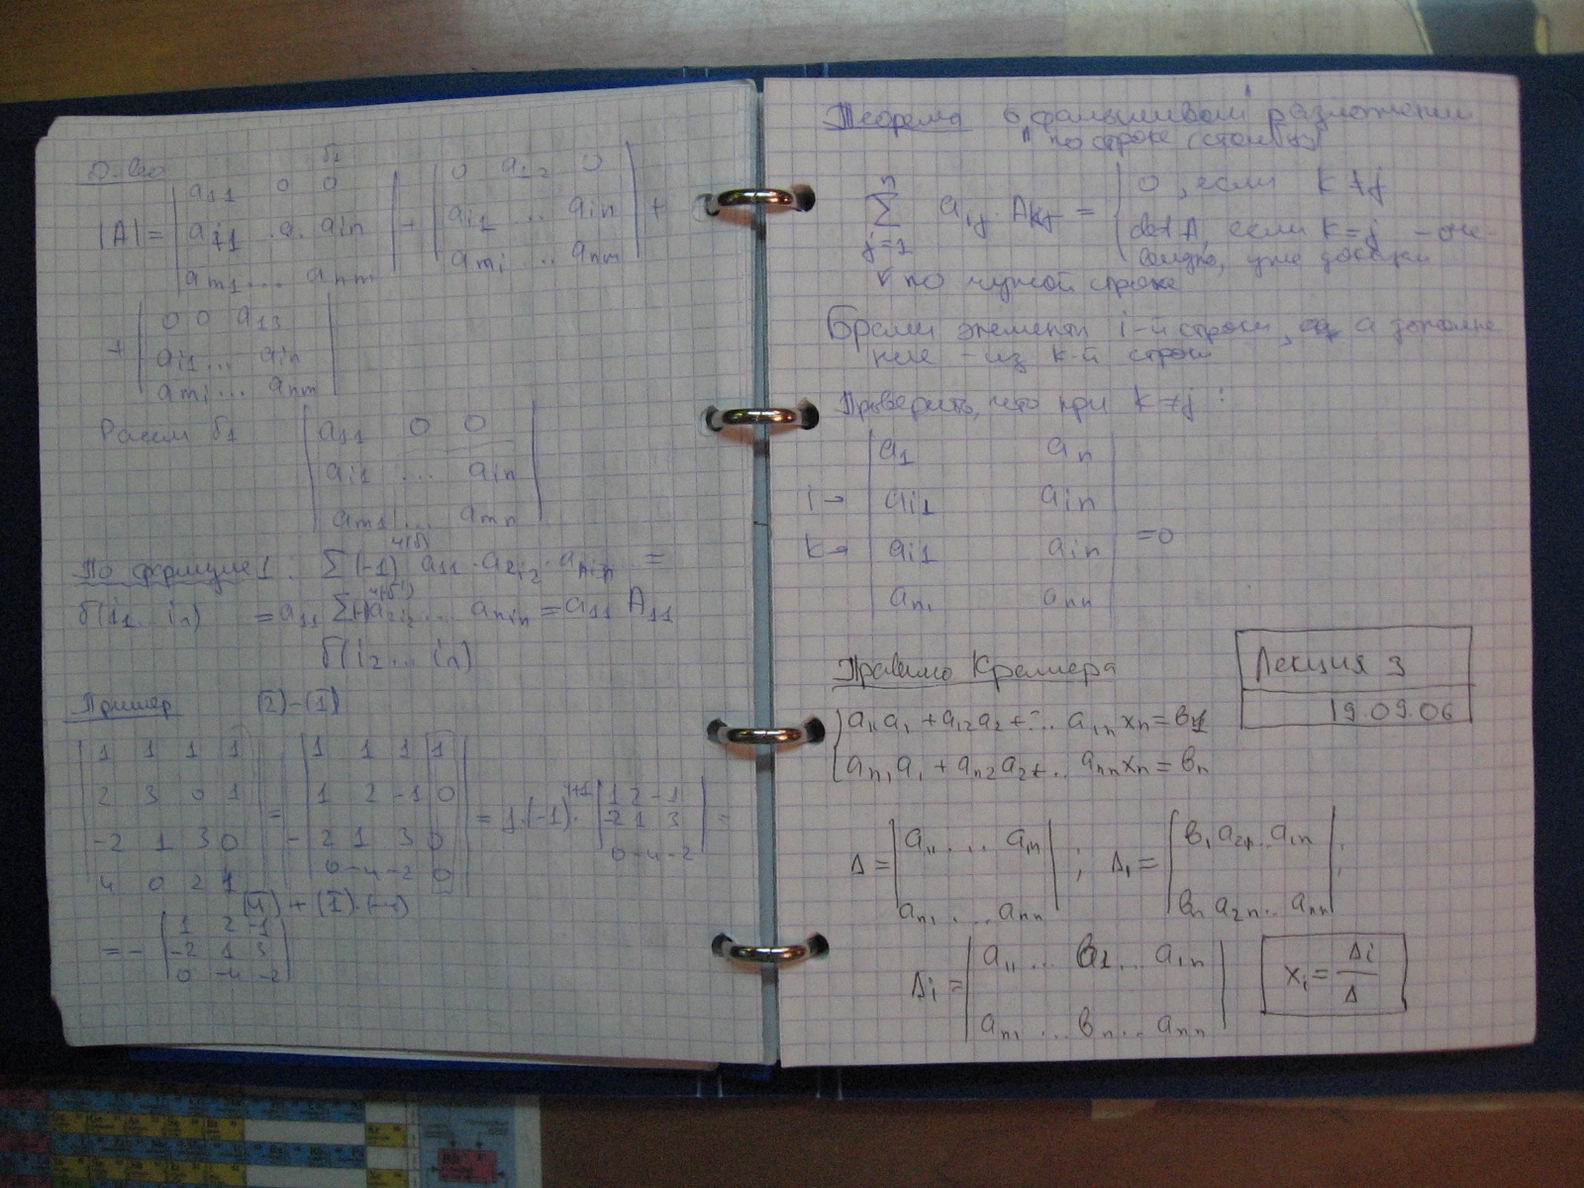 Д-во
б₁
|A| = | a₁₁ 0 0 | + | 0 a₁₂ 0 | +
| aᵢ₁ . a . aᵢₙ | | aᵢ₁ ... aᵢₙ |
| aₘ₁ ... aₙₘ | | aₘᵢ ... aₙₘ |
+ | 0 0 a₁₃ |
| aᵢ₁ ... aᵢₙ |
| aₘᵢ ... aₙₘ |
Рассм б₁ | a₁₁ 0 0 |
| aᵢ₁ ... aᵢₙ |
| aₘ₁ ... aₘₙ |
По формуле 1. Σ (-1)^ч(б) a₁₁ · a₂ᵢ₂ · aₙᵢₙ =
б(i₁ iₙ) = a₁₁ Σ(-1)^ч(б') a₂ᵢ₂ ... aₙᵢₙ = a₁₁ A₁₁
б(i₂ ... iₙ)
Пример (2)-(1)
| 1 1 1 1 | = | 1 1 1 1 | = 1·(-1)^4+1 · | 1 2 -1 | =
| 2 3 0 1 | | 1 2 -1 0 | | -2 1 3 |
| -2 1 3 0 | | -2 1 3 0 | | 0 -4 -2 |
| 4 0 2 1 | | 0 -4 -2 0 |
(4) + (1)·(-4)
= - | 1 2 -1 |
| -2 1 3 |
| 0 -4 -2 |
Теорема о фальшивом разложении
по строке (столбцу)
n
Σ aᵢⱼ · Aₖⱼ = { 0, если k≠j
j=1 det A, если k=j - оче-
видно, уже доказали
по чужой строке
Брали элементы i-й строки, а дополне
ние - из k-й строки
Проверить, что при k≠j :
| a₁ aₙ |
i → | aᵢ₁ aᵢₙ |
k → | aᵢ₁ aᵢₙ | = 0
| aₙ₁ aₙₙ |
Правило Крамера
Лекция 3
19.09.06
{ a₁₁a₁ + a₁₂a₂ + ... a₁ₙxₙ = в1
aₙ₁a₁ + aₙ₂a₂ + ... aₙₙxₙ = вₙ
Δ = | a₁₁ ... a₁ₙ | ; Δ₁ = | в₁ a₂₁ .. a₁ₙ | ;
| aₙ₁ ... aₙₙ | | вₙ a₂ₙ .. aₙₙ |
Δi = | a₁₁ ... в1 ... a₁ₙ |
| aₙ₁ ... вₙ ... aₙₙ |
xᵢ = Δi / Δ